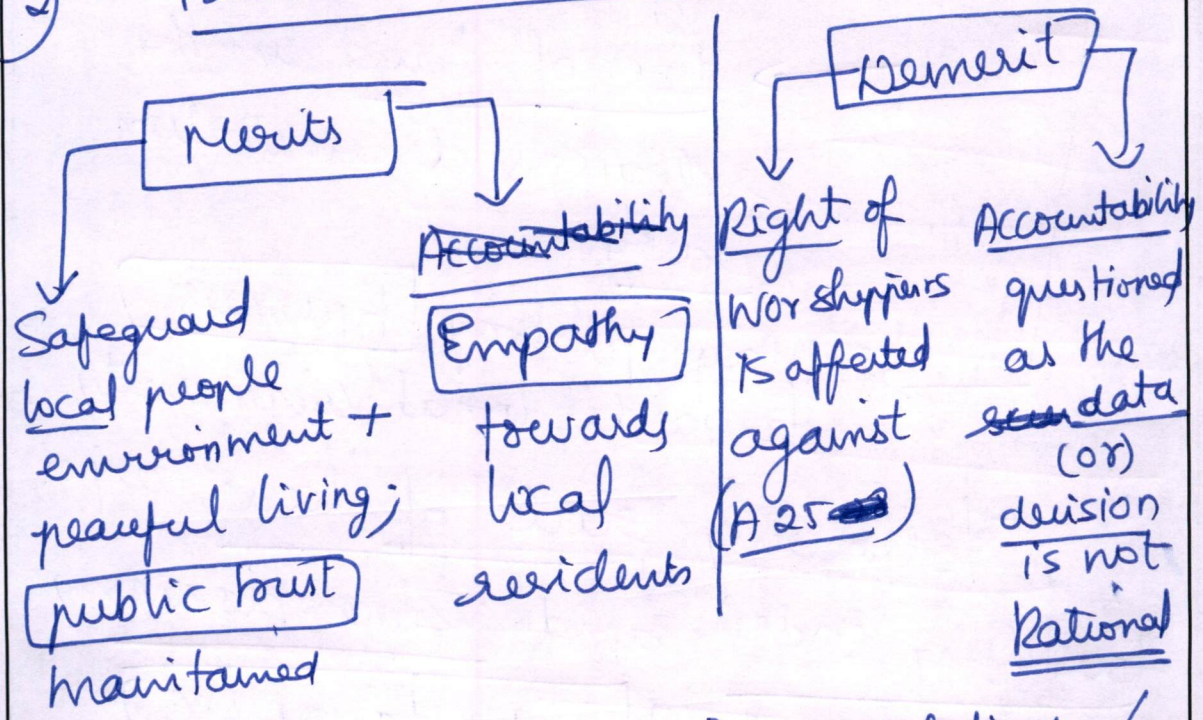 2)
Merits
Safeguard
local people
environment +
peaceful living;
public trust
maintained
Accountability
Empathy
towards
local
residents
Demerit
Right of
worshippers
is affected
against
(A 25)
Accountability
questioned
as the
data
(or)
decision
is not
Rational